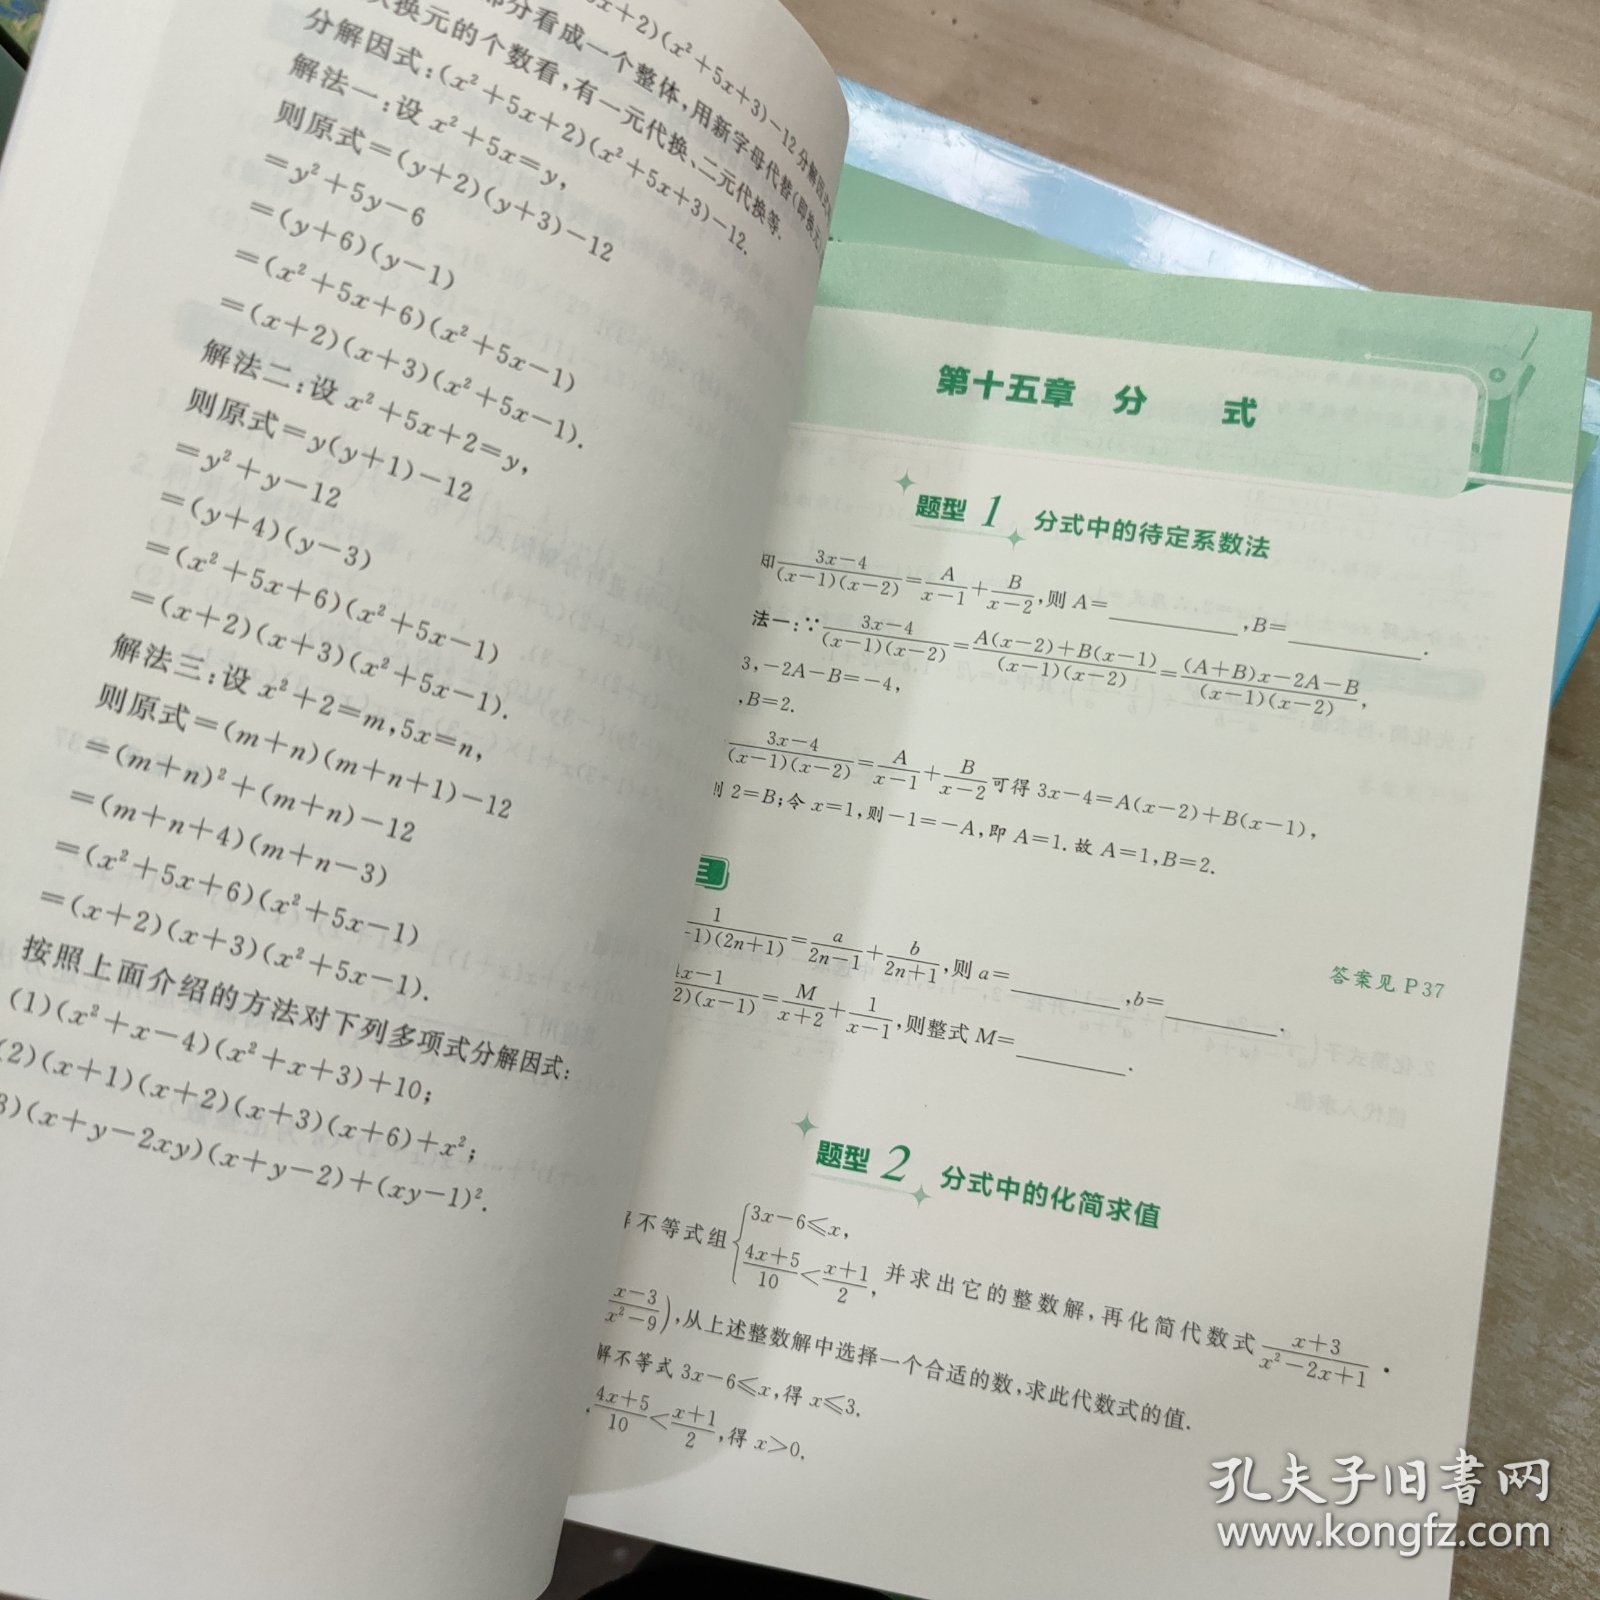 x+2)(x²+5x+3)-12分解因式
部分看成一个整体,用新字母代替(即换元
从换元的个数看,有一元代换、二元代换等.
分解因式:(x²+5x+2)(x²+5x+3)-12.
解法一:设 x²+5x=y,
则原式=(y+2)(y+3)-12
=y²+5y-6
=(y+6)(y-1)
=(x²+5x+6)(x²+5x-1)
=(x+2)(x+3)(x²+5x-1).
解法二:设 x²+5x+2=y,
则原式=y(y+1)-12
=y²+y-12
=(y+4)(y-3)
=(x²+5x+6)(x²+5x-1)
=(x+2)(x+3)(x²+5x-1).
解法三:设 x²+2=m,5x=n,
则原式=(m+n)(m+n+1)-12
=(m+n)²+(m+n)-12
=(m+n+4)(m+n-3)
=(x²+5x+6)(x²+5x-1)
=(x+2)(x+3)(x²+5x-1).
按照上面介绍的方法对下列多项式分解因式:
(1)(x²+x-4)(x²+x+3)+10;
(2)(x+1)(x+2)(x+3)(x+6)+x²;
3)(x+y-2xy)(x+y-2)+(xy-1)².
第十五章 分 式
题型 1 分式中的待定系数法
知 (3x-4)/((x-1)(x-2)) = A/(x-1) + B/(x-2),则 A=______,B=______.
法一:∵ (3x-4)/((x-1)(x-2)) = (A(x-2)+B(x-1))/((x-1)(x-2)) = ((A+B)x-2A-B)/((x-1)(x-2)),
3,-2A-B=-4,
,B=2.
(3x-4)/((x-1)(x-2)) = A/(x-1) + B/(x-2) 可得 3x-4=A(x-2)+B(x-1),
则 2=B;令 x=1,则-1=-A,即 A=1.故 A=1,B=2.
答案见 P37
1/(-1)(2n+1) = a/(2n-1) + b/(2n+1),则 a=______,b=______.
4x-1/2)(x-1) = M/(x+2) + 1/(x-1),则整式 M=______.
题型 2 分式中的化简求值
不等式组 { 3x-6≤x, (4x+5)/10 < (x+1)/2, 并求出它的整数解,再化简代数式 (x+3)/(x²-2x+1) ·
(x-3)/(x²-9)),从上述整数解中选择一个合适的数,求此代数式的值.
解不等式 3x-6≤x,得 x≤3.
(4x+5)/10 < (x+1)/2,得 x>0.
孔夫子旧书网
www.kongfz.com